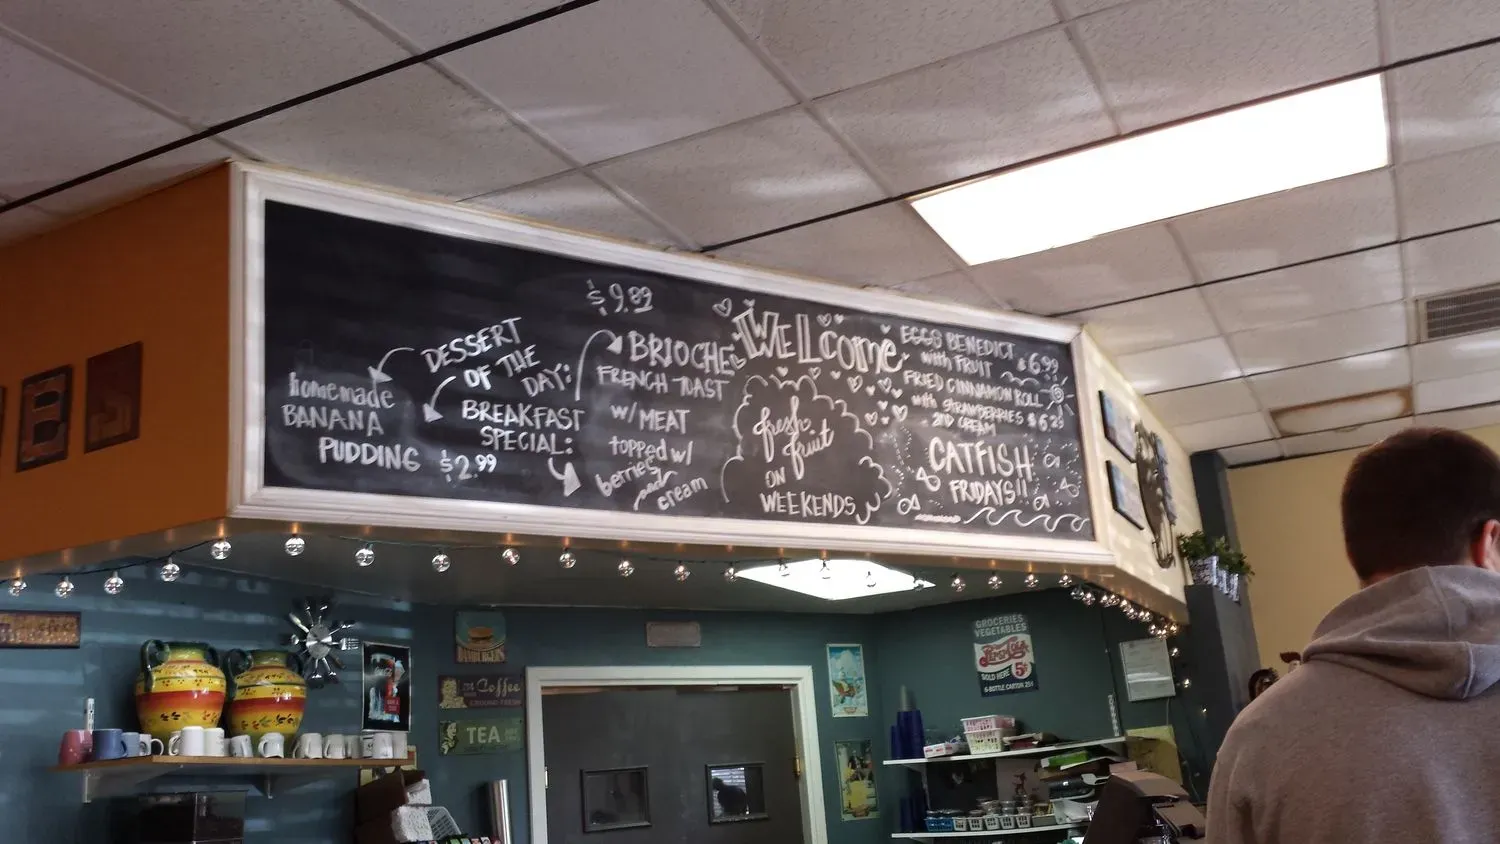 DESSERT
OF THE
DAY:
homemade
BANANA
PUDDING $2.99
BREAKFAST
SPECIAL:
$9.89
BRIOCHE
FRENCH TOAST
W/ MEAT
topped w/
berries
and cream
WELCOME
fresh
fruit
ON
WEEKENDS
EGGS BENEDICT
with FRUIT $6.99
FRIED CINNAMON ROLL
with STRAWBERRIES
AND CREAM
CATFISH
FRIDAYS!!
HAMBURGERS
Coffee
TEA
GROCERIES
VEGETABLES
Pepsi-Cola
SOLD HERE 5¢
6-BOTTLE CARTON 25¢